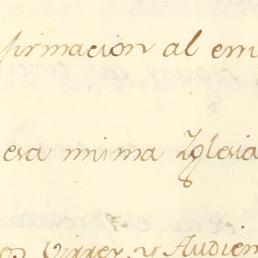 firmacion al em
esa mima Iglesia
Virrey, y Audien